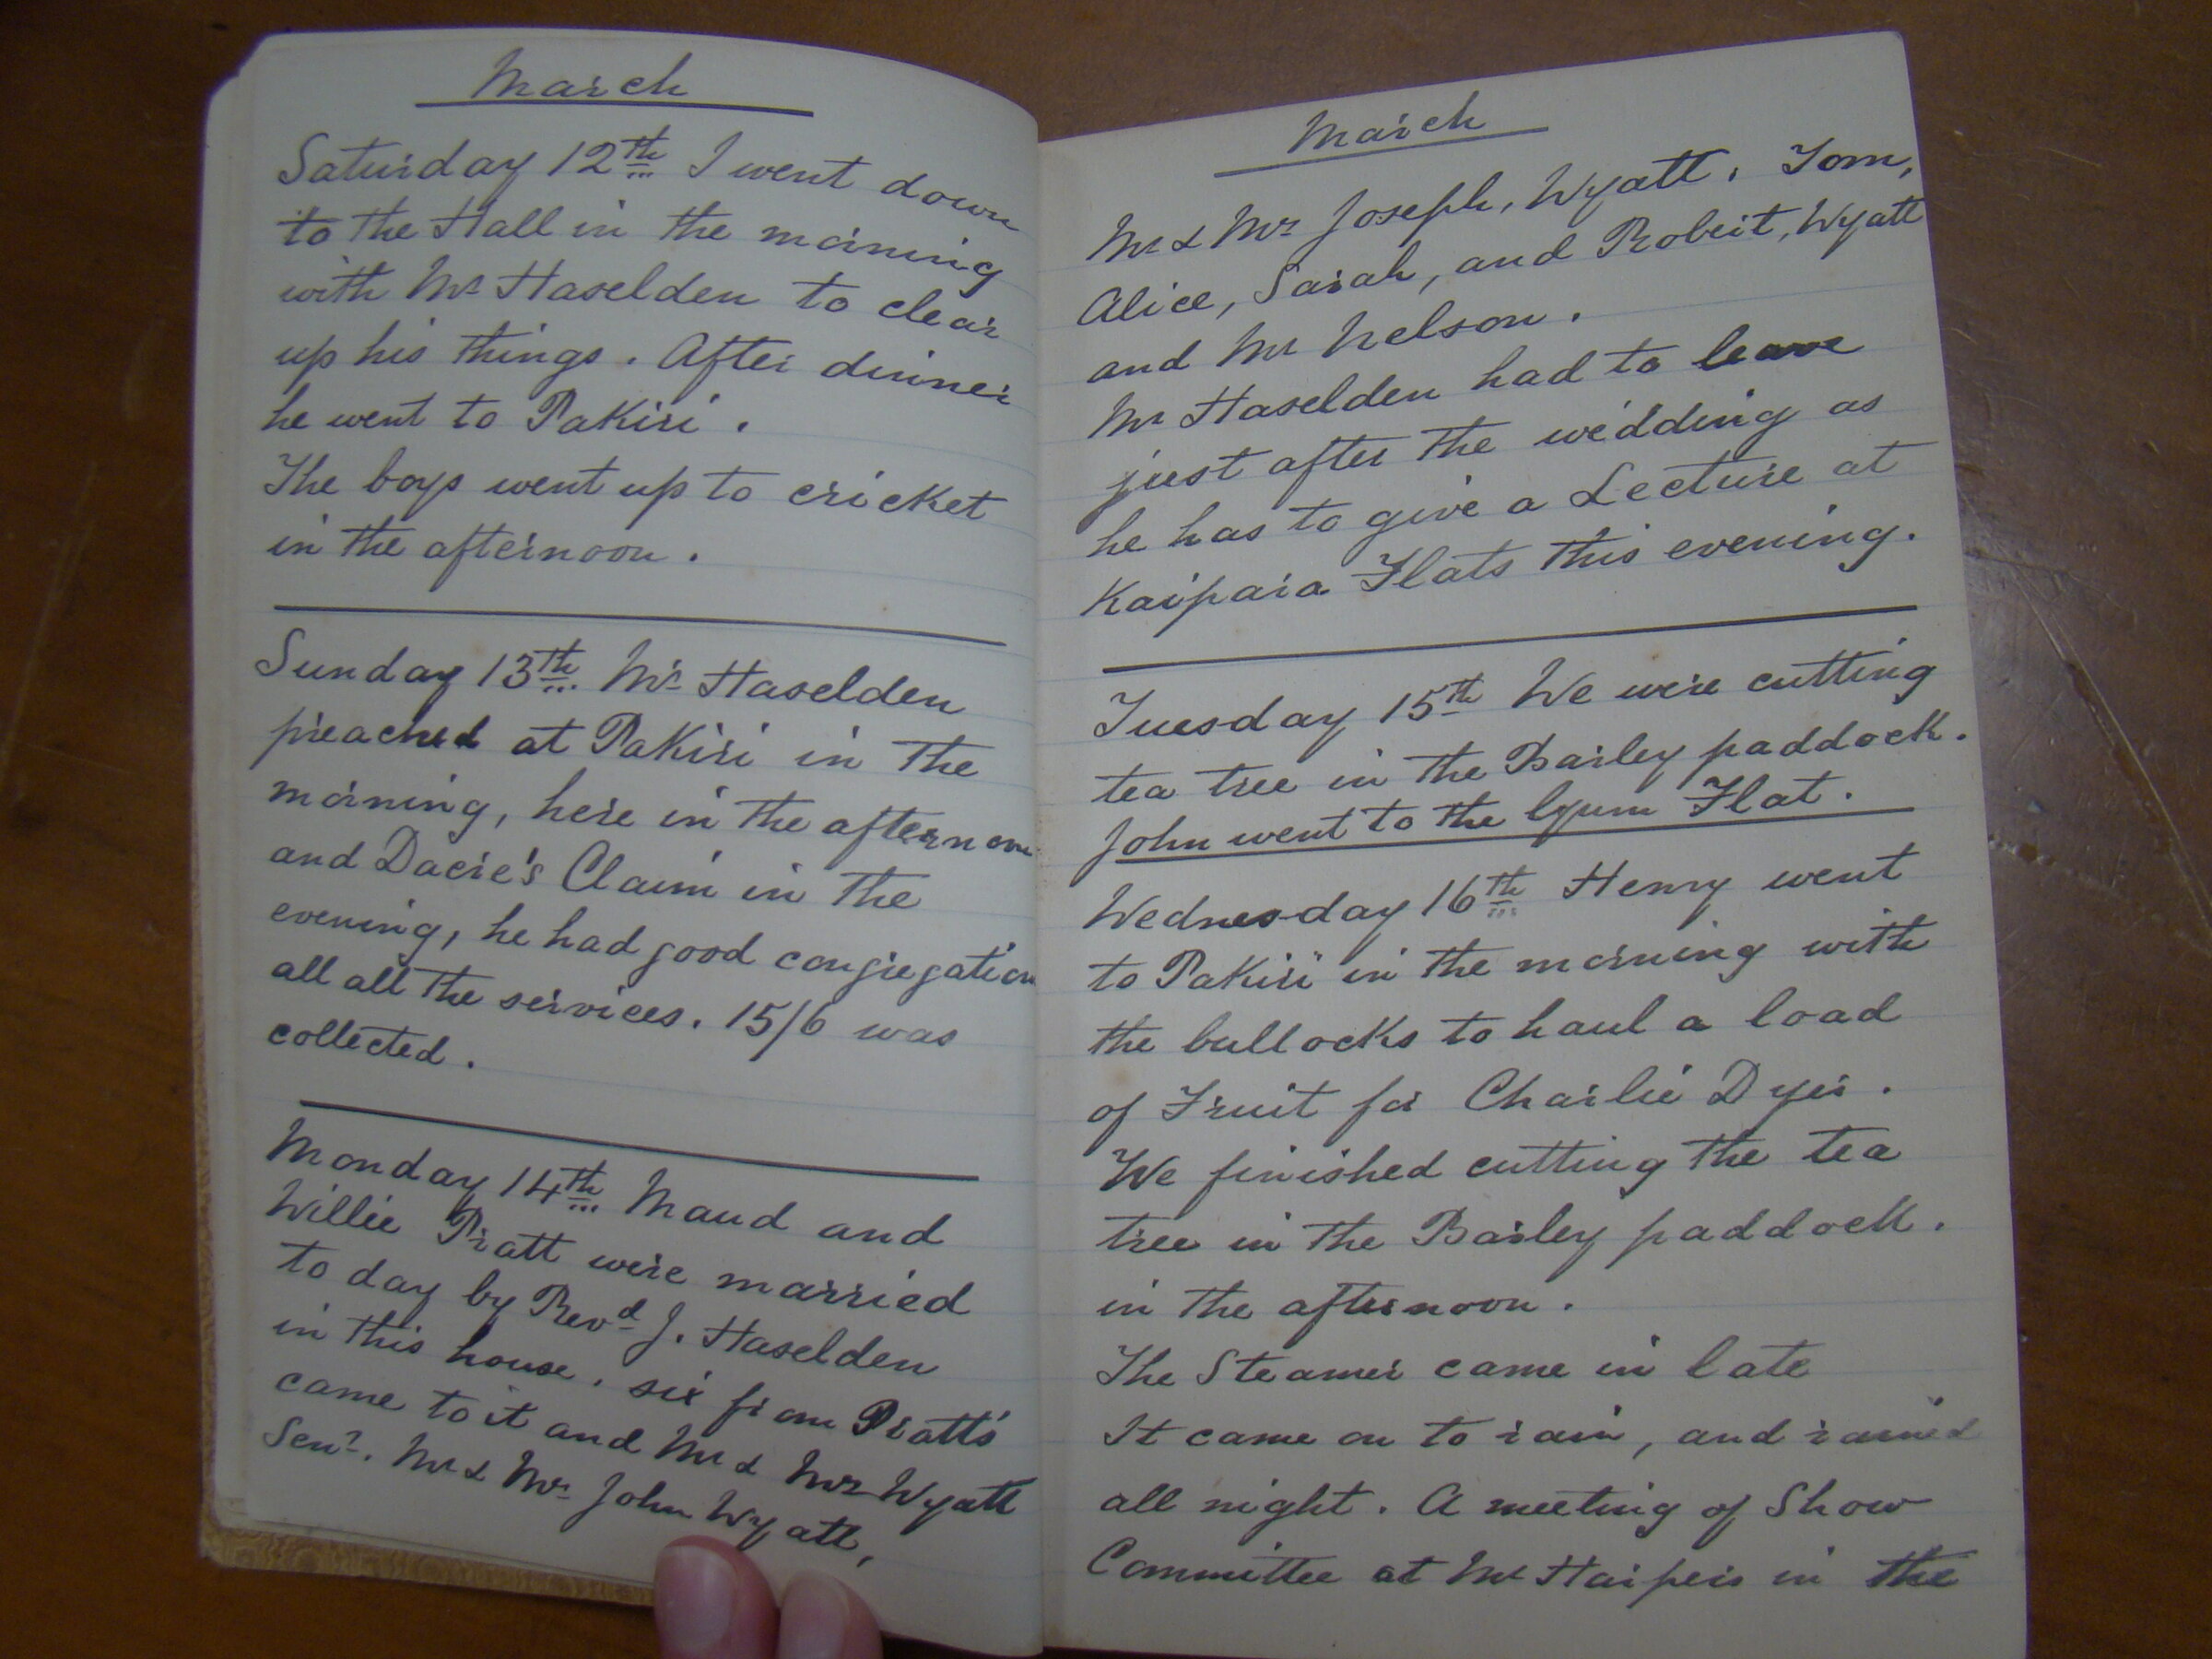 March
Saturday 12th I went down
to the Hall in the morning
with Mr Haselden to clear
up his things. After dinner
he went to Pakiri.
The boys went up to cricket
in the afternoon.
Sunday 13th. Mr Haselden
preached at Pakiri in the
morning, here in the afternoon
and Dacre's Claim in the
evening, he had good congregation
all all the services. 15/6 was
collected.
Monday 14th Maud and
Willie Pratt were married
to day by Revd J. Haselden
in this house. six from Pratts
came to it and Mr & Mrs Wyatt
Senr. Mr & Mrs John Wyatt,
March
Mr & Mrs Joseph, Wyatt. Tom,
Alice, Sarah, and Robert, Wyatt
and Mr Nelson.
Mr Haselden had to leave
just after the wedding as
he has to give a Lecture at
Kaipara Flats this evening.
Tuesday 15th We were cutting
tea tree in the Barley paddock.
John went to the Gum Flat.
Wednesday 16th Henry went
to Pakiri in the morning with
the bullocks to haul a load
of Fruit for Charlie Dyer.
We finished cutting the tea
tree in the Barley paddock.
in the afternoon.
The Steamer came in late
It came on to rain, and rained
all night. A meeting of Show
Committee at Mr Harpers in the